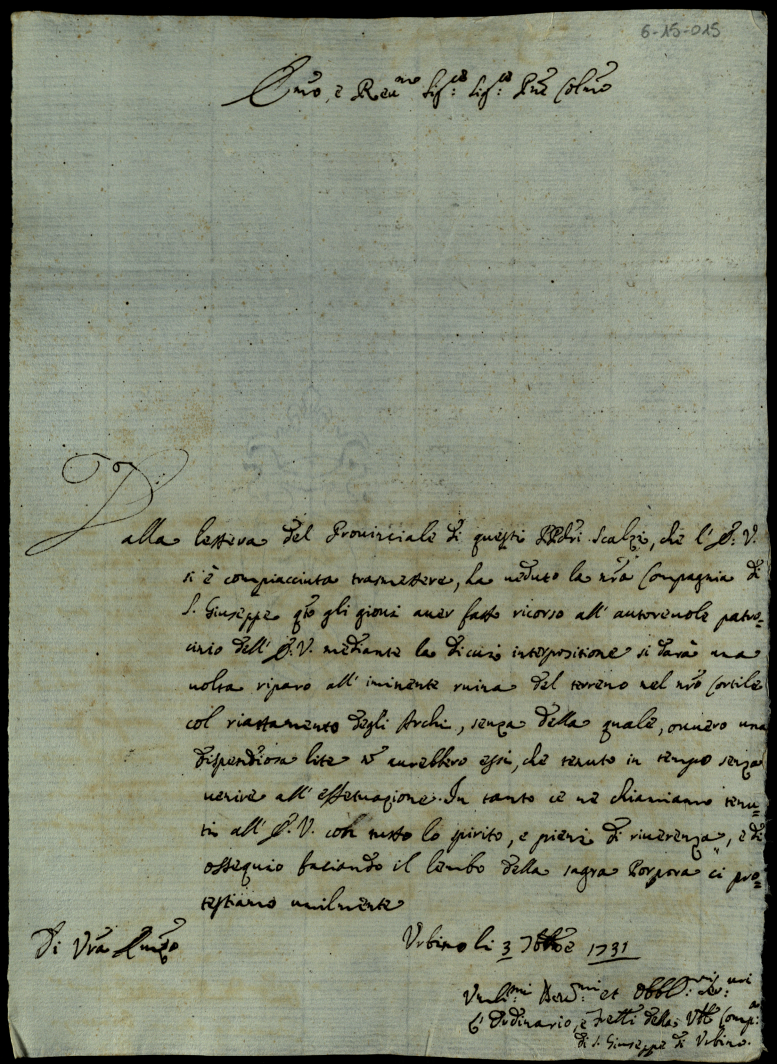 6-15-015
Emo, e Reumo Sigre: Sigre: Pne Colmo
Dalla lettera del Provinciale di questi PPdri Scalzi, che l'E: V.
si è compiacciuta trasmettere, ha ueduto la nra Compagnia di
S. Giuseppe qto gli gioui auer fatto ricorso all' autoreuole patro=
cinio dell' E. V. mediante la di cui interpositione si darà una
uolta riparo all' iminente ruina del terreno nel nro Cortile
col riattamento degli Archi, senza della quale, ouuero una
dispendiosa lite nō aurebbero essi, che tenuto in tempo senza
uenire all' effetuazione. In tanto ce ne chiamiamo tenu=
ti all' E. V. con tutto lo spirito, e pieni di riuerenza, e di
ossequio baciando il lembo della sagra Porpora ci pro=
testiamo umilmente
Di Vra Emza
Urbino li 3 7bre 1731
Umilmi Deumi et Obblmi: Seruri
L'Ordinario, e Fratti della Ven Comp:a
di S. Giuseppe di Urbino.